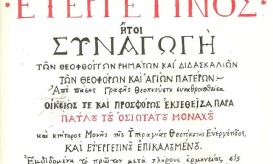 ΕΥΕΡΓΕΤΙΝΟΣ
ἤτοι
ΣΥΝΑΓΩΓΗ
ΤΩΝ ΘΕΟΦΘΟΓΓΩΝ ΡΗΜΑΤΩΝ ΚΑΙ ΔΙΔΑΣΚΑΛΙΩΝ
ΤΩΝ ΘΕΟΦΟΡΩΝ ΚΑΙ ΑΓΙΩΝ ΠΑΤΕΡΩΝ
Ἀπὸ πάσης Γραφῆς Θεοπνεύστου συναθροισθεῖσα
ΟΙΚΕΙΩΣ ΤΕ ΚΑΙ ΠΡΟΣΦΟΡΩΣ ΕΚΤΕΘΕΙΣΑ ΠΑΡΑ
ΠΑΥΛΟΥ ΤΟΥ ΟΣΙΩΤΑΤΟΥ ΜΟΝΑΧΟΥ
καὶ κτήτορος Μονῆς τῆς Ὑπεραγίας Θεοτόκου Εὐεργέτιδος,
ΚΑΙ ΕΥΕΡΓΕΤΙΝΟΥ ΕΠΙΚΑΛΟΥΜΕΝΟΥ.
τὸ πρῶτον μετὰ